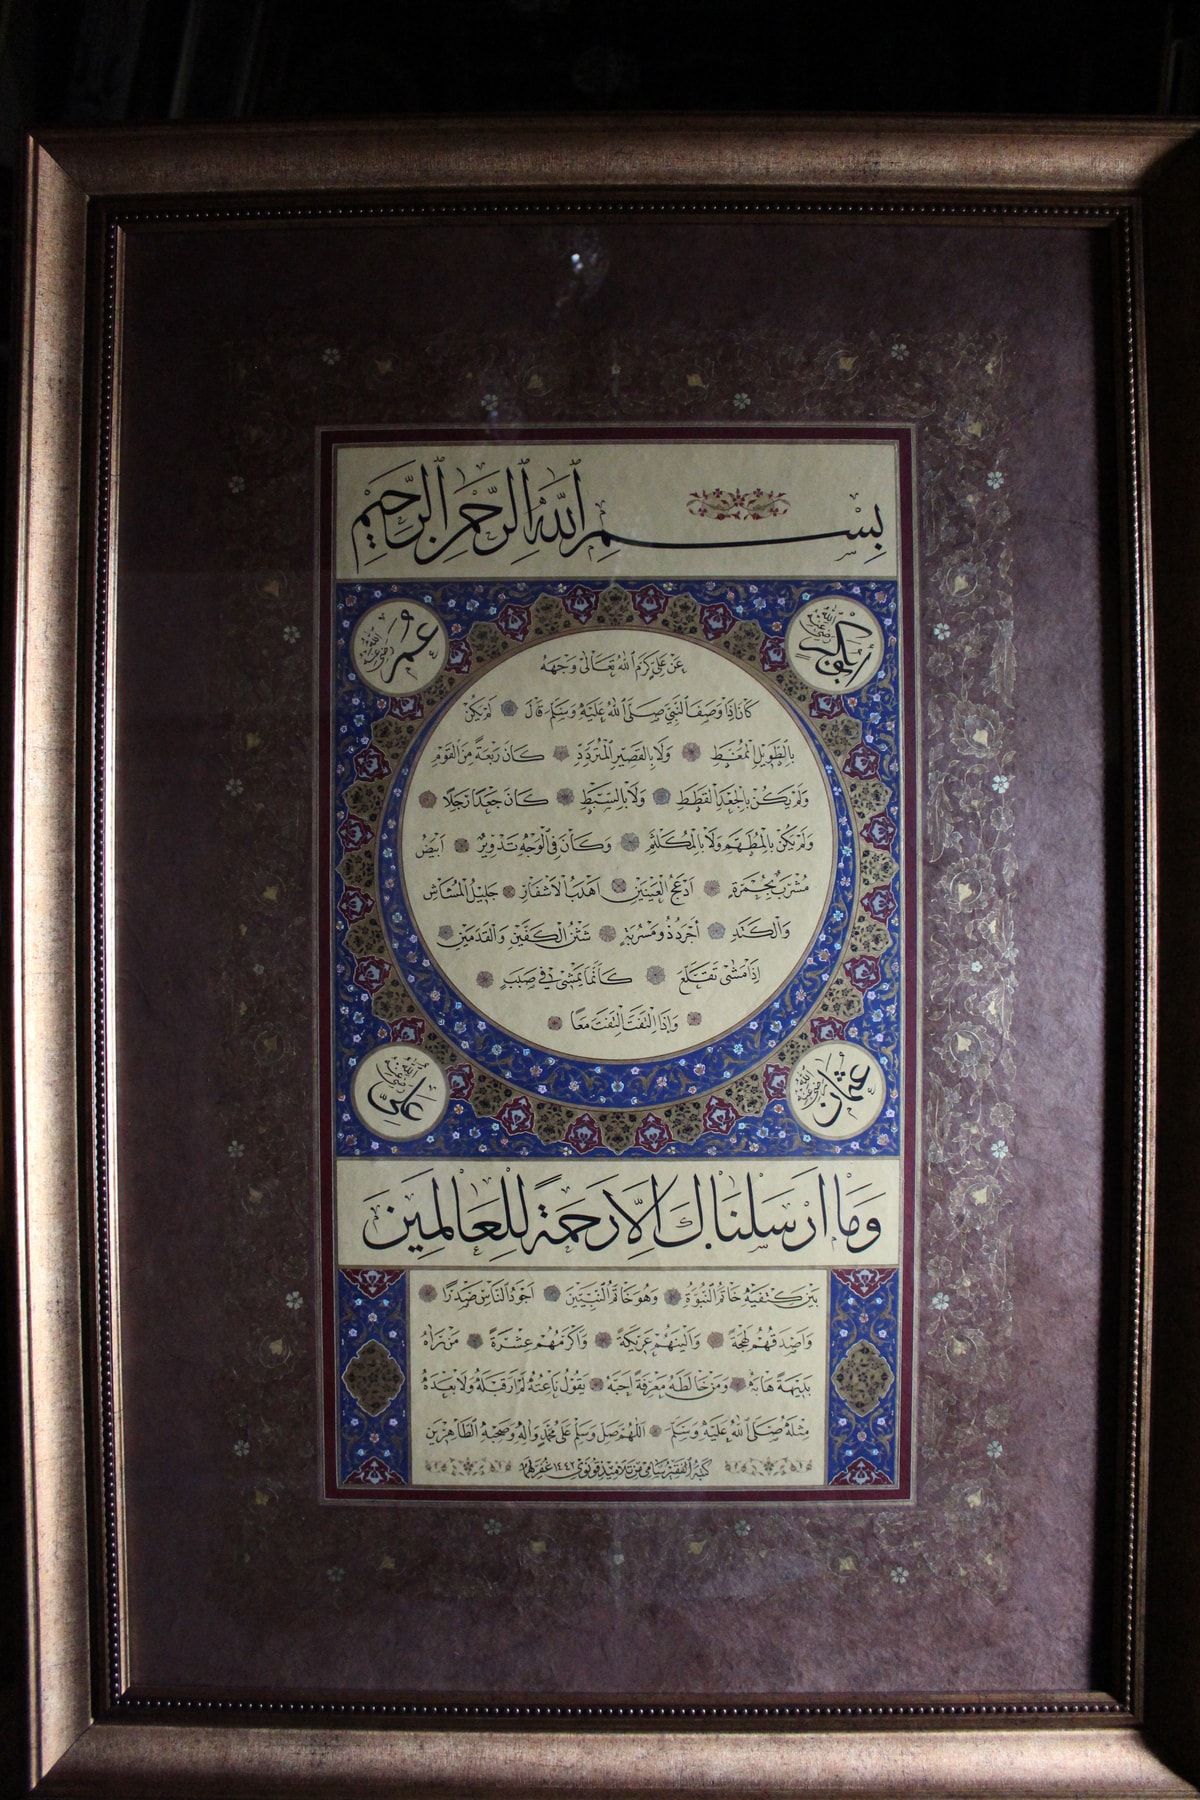 بِسْمِ ٱللَّهِ ٱلرَّحْمٰنِ ٱلرَّحِيمِ
أبو بكر رضي الله عنه
عُمَر رضي الله عنه
عَنْ عَلِيٍّ كَرَّمَ ٱللهُ تَعَالٰى وَجْهَهُ
كَانَ إِذَا وَصَفَ ٱلنَّبِيَّ صَلَّى ٱللهُ عَلَيْهِ وَسَلَّمَ قَالَ لَمْ يَكُنْ
بِالطَّوِيلِ الْمُمَّغِطِ وَلَا بِالْقَصِيرِ الْمُتَرَدِّدِ كَانَ رَبْعَةً مِنَ الْقَوْمِ
وَلَمْ يَكُنْ بِالْجَعْدِ الْقَطَطِ وَلَا بِالسَّبِطِ كَانَ جَعْدًا رَجِلًا
وَلَمْ يَكُنْ بِالْمُطَهَّمِ وَلَا بِالْمُكَلْثَمِ وَكَانَ فِي الْوَجْهِ تَدْوِيرٌ أَبْيَضُ
مُشْرَبٌ بِحُمْرَةٍ أَدْعَجُ الْعَيْنَيْنِ أَهْدَبُ الْأَشْفَارِ جَلِيلُ الْمُشَاشِ
وَالْكَتَدِ أَجْرَدُ ذُو مَسْرُبَةٍ شَثْنُ الْكَفَّيْنِ وَالْقَدَمَيْنِ
إِذَا مَشٰى تَقَلَّعَ كَأَنَّمَا يَمْشِي فِي صَبَبٍ
وَإِذَا الْتَفَتَ الْتَفَتَ مَعًا
عُثْمَان رضي الله عنه
عَلِيّ رضي الله عنه
وَمَا اَرْسَلْنَاكَ اِلَّا رَحْمَةً لِلْعَالَمِينَ
بَيْنَ كَتِفَيْهِ خَاتَمُ النُّبُوَّةِ وَهُوَ خَاتَمُ النَّبِيِّينَ أَجْوَدُ النَّاسِ صَدْرًا
وَأَصْدَقُهُمْ لَهْجَةً وَأَلْيَنُهُمْ عَرِيكَةً وَأَكْرَمُهُمْ عِشْرَةً مَنْ رَاٰهُ
بَدِيهَةً هَابَهُ وَمَنْ خَالَطَهُ مَعْرِفَةً أَحَبَّهُ يَقُولُ نَاعِتُهُ لَمْ أَرَ قَبْلَهُ وَلَا بَعْدَهُ
مِثْلَهُ صَلَّى ٱللهُ عَلَيْهِ وَسَلَّمَ اَللّٰهُمَّ صَلِّ وَسَلِّمْ عَلٰى مُحَمَّدٍ وَاٰلِهِ وَصَحْبِهِ الطَّاهِرِينَ
كتبه الفقير سامي من تلاميذ قوتوي ١٤٤٢ غفر لهما